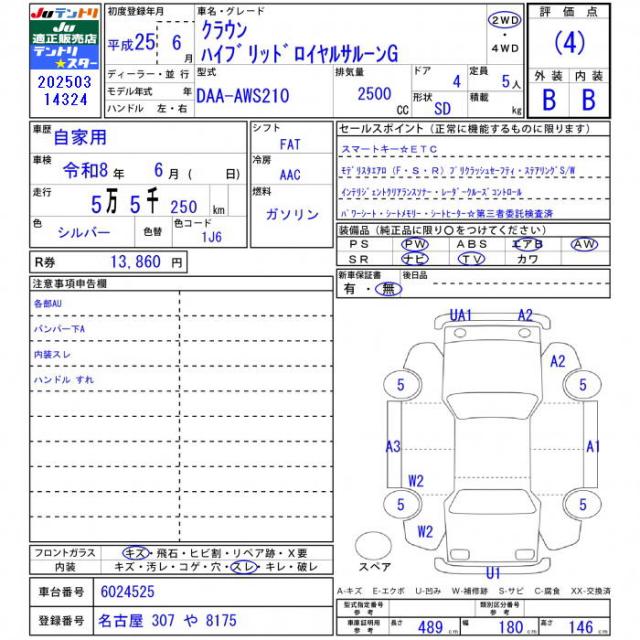 Juテントリ
Ju
適正販売店
テントリ
☆スター
202503
14324
初度登録年月
平成25年 6月
ディーラー・並 行
モデル年式 年
ハンドル 左・右
車名・グレード
クラウン
ハイブリッドロイヤルサルーンG
2WD
・
4WD
型式
DAA-AWS210
排気量
2500
CC
ドア 4
定員 5人
形状 SD
積載 kg
評 価 点
(4)
外 装 内 装
B B
車歴 自家用
車検 令和8年 6月( 日)
走行 5万 5千 250 km
色 シルバー 色替 色コード 1J6
シフト
FAT
冷房
AAC
燃料
ガソリン
セールスポイント(正常に機能するものに限ります)
スマートキー☆ETC
モデリスタエアロ(F・S・R)プリクラッシュセーフティ・ステアリングS/W
インテリジェントクリアランスソナー・レーダークルーズコントロール
パワーシート・シートメモリー・シートヒーター☆第三者委託検査済
装備品(純正品に限り○をつけてください)
PS PW ABS エアB AW
SR ナビ TV カワ
R券 13,860 円
新車保証書 後日品
有・無
注意事項申告欄
各部AU
バンパー下A
内装スレ
ハンドル すれ
UA1 A2
A2
5 5
A3 A1
W2
5 5
W2
スペア
U1
フロントガラス キズ・飛石・ヒビ割・リペア跡・X要
内装 キズ・汚レ・コゲ・穴・スレ・キレ・破レ
A-キズ E-エクボ U-凹み W-補修跡 S-サビ C-腐食 XX-交換済
車台番号 6024525
登録番号 名古屋 307 や 8175
型式指定番号
参考
類別区分番号
参考
車庫証明用
参考
長さ 489 cm 幅 180 cm 高さ 146 cm